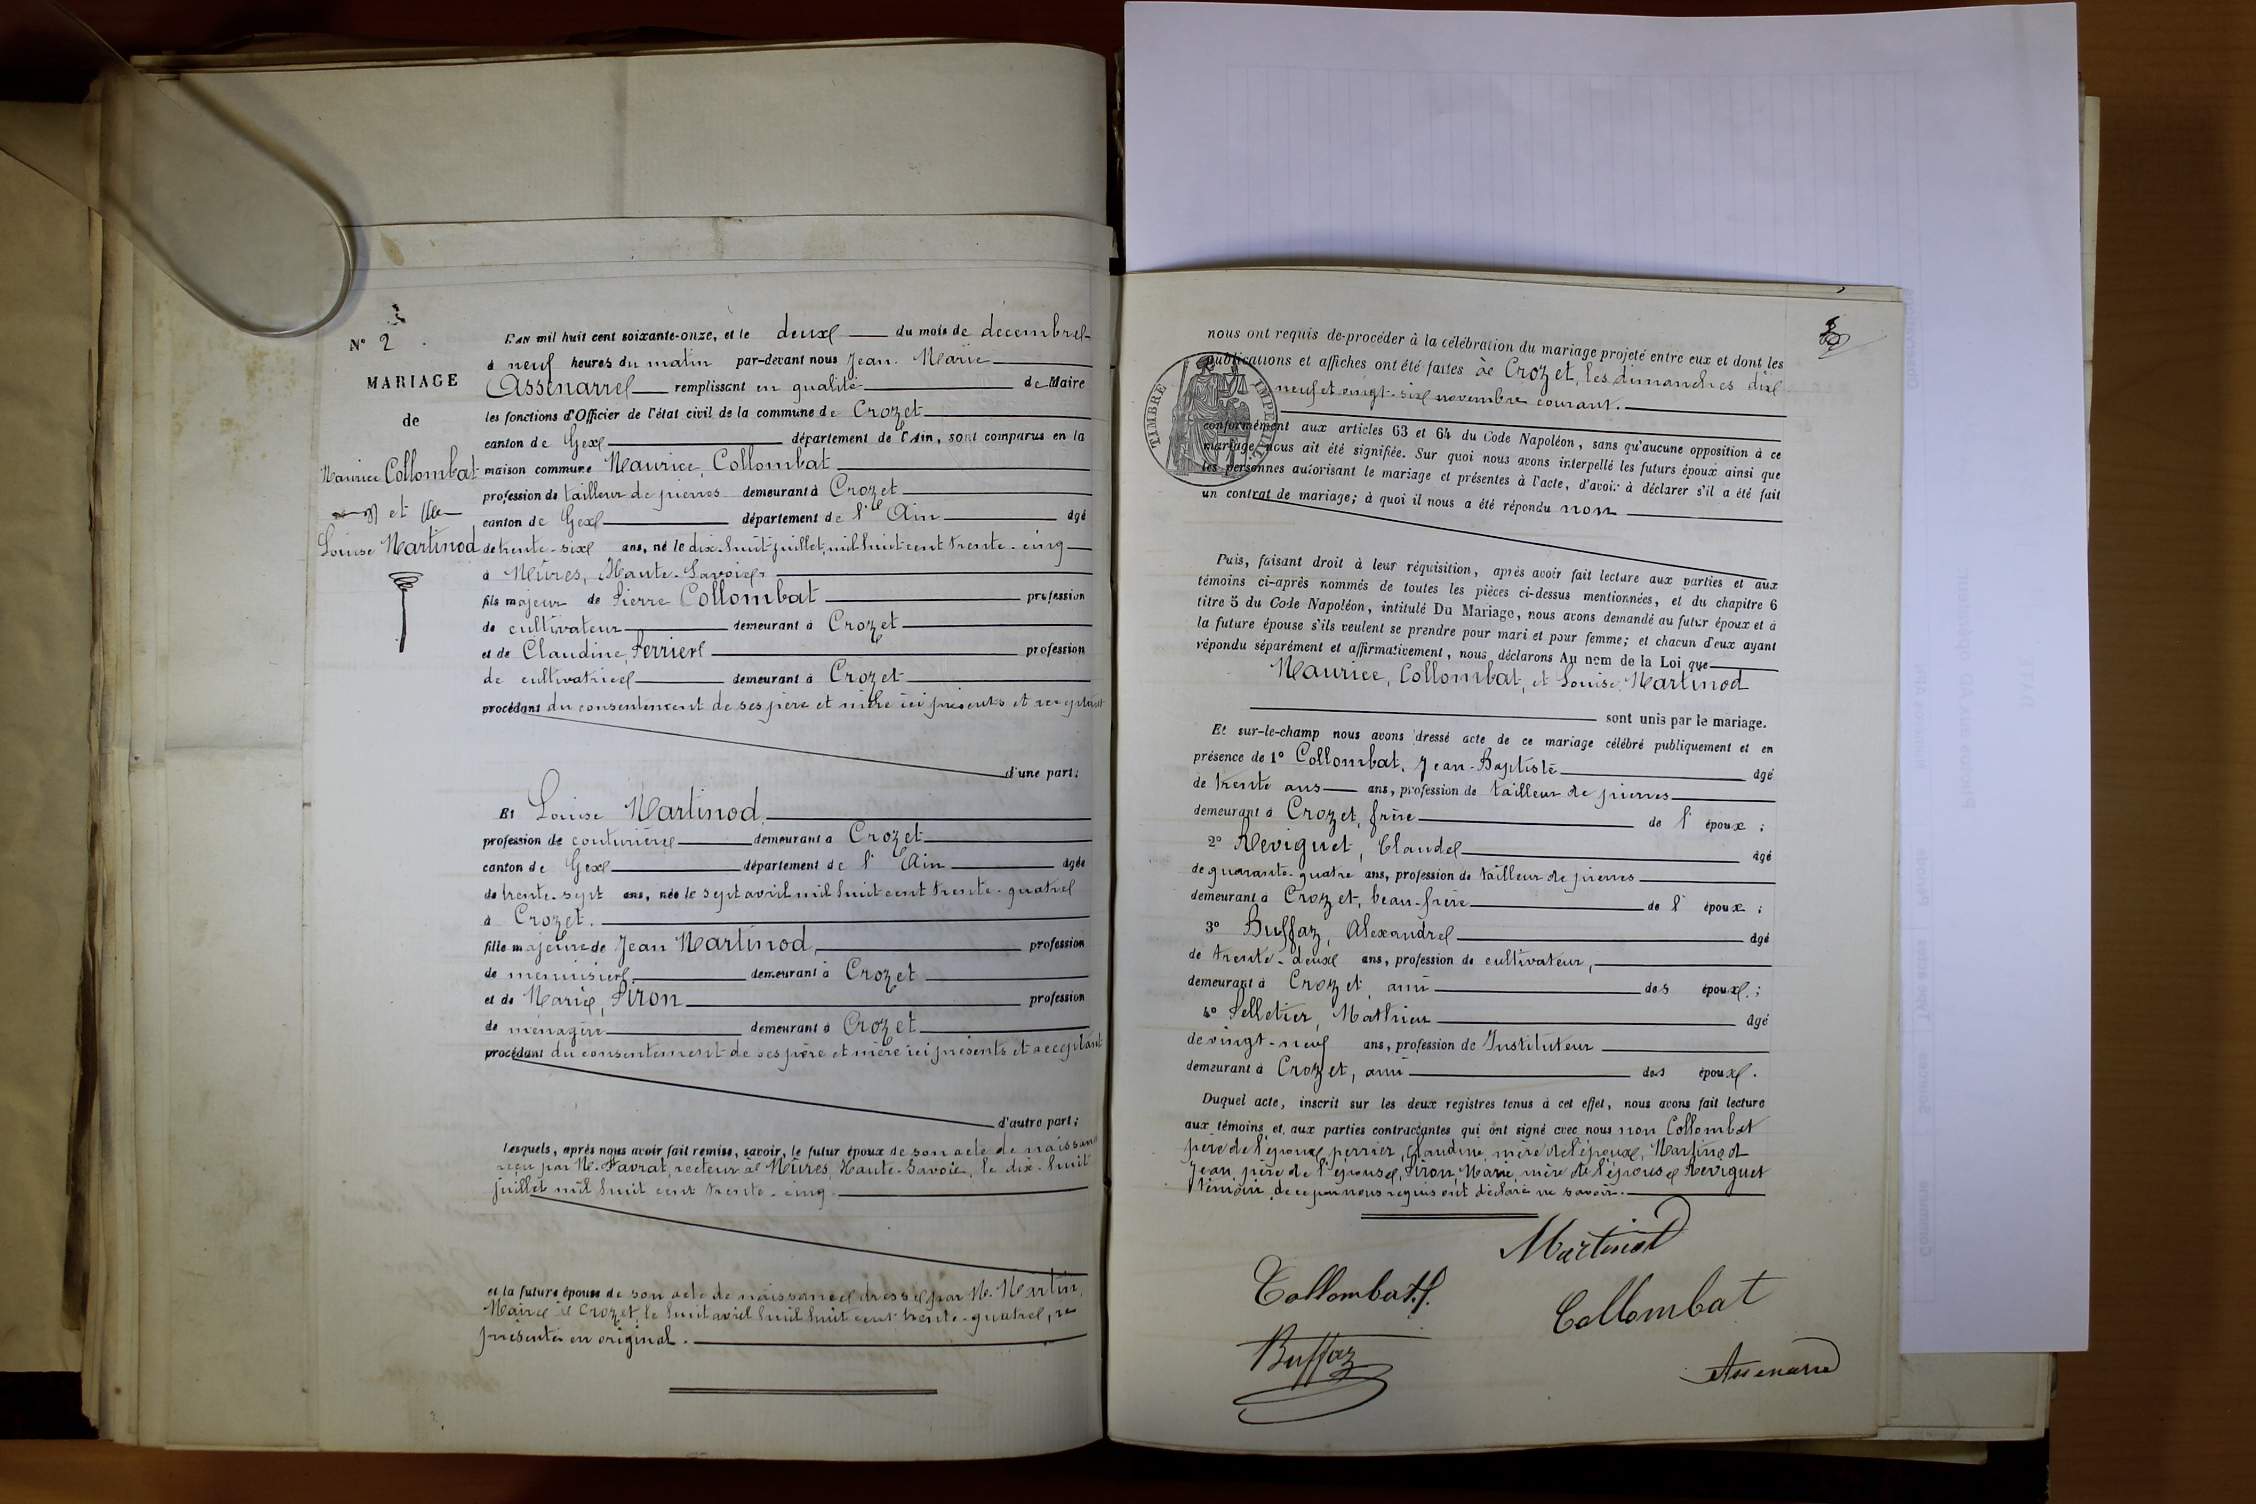 N° 2
MARIAGE
de
Maurice Collombat
et
Louise Martinod
L'AN mil huit cent soixante-onze, et le deux du mois de décembre
à neuf heures du matin par-devant nous Jean Marie
Assenarre remplissant en qualité de Maire
les fonctions d'Officier de l'état civil de la commune de Crozet
canton de Gex département de l'Ain, sont comparus en la
maison commune Maurice Collombat
profession de tailleur de pierres demeurant à Crozet
canton de Gex département de l' Ain âgé
de trente-six ans, né le dix-huit juillet mil huit cent trente-cinq
à Mûres, Haute-Savoie
fils majeur de Pierre Collombat profession
de cultivateur demeurant à Crozet
et de Claudine Perrier profession
de cultivatrice demeurant à Crozet
procédant du consentement de ses père et mère ici présents et acceptant
d'une part;
Et Louise Martinod
profession de couturière demeurant à Crozet
canton de Gex département de l' Ain âgée
de trente-sept ans, née le sept avril mil huit cent trente-quatre
à Crozet.
fille majeure de Jean Martinod, profession
de menuisier demeurant à Crozet
et de Marie Piron profession
de ménagère demeurant à Crozet
procédant du consentement de ses père et mère ici présents et acceptant
d'autre part;
Lesquels, après nous avoir fait remise, savoir, le futur époux de son acte de naissance
reçu par M. Favrat, recteur à Mûres, Haute-Savoie, le dix-huit
juillet mil huit cent trente-cinq.
et la future épouse de son acte de naissance dressé par M. Martin,
Maire à Crozet, le huit avril huit cent trente-quatre,
présenter en original.
nous ont requis de procéder à la célébration du mariage projeté entre eux et dont les
publications et affiches ont été faites à Crozet, les dimanches dix
neuf et vingt-six novembre courant.
TIMBRE IMPÉRIAL
conformément aux articles 63 et 64 du Code Napoléon, sans qu'aucune opposition à ce
mariage nous ait été signifiée. Sur quoi nous avons interpellé les futurs époux ainsi que
les personnes autorisant le mariage et présentes à l'acte, d'avoir à déclarer s'il a été fait
un contrat de mariage; à quoi il nous a été répondu non
Puis, faisant droit à leur réquisition, après avoir fait lecture aux parties et aux
témoins ci-après nommés de toutes les pièces ci-dessus mentionnées, et du chapitre 6
titre 5 du Code Napoléon, intitulé Du Mariage, nous avons demandé au futur époux et à
la future épouse s'ils veulent se prendre pour mari et pour femme; et chacun d'eux ayant
répondu séparément et affirmativement, nous déclarons Au nom de la Loi que
Maurice, Collombat, et Louise Martinod
sont unis par le mariage.
Et sur-le-champ nous avons dressé acte de ce mariage célébré publiquement et en
présence de 1° Collombat, Jean-Baptiste âgé
de trente ans ans, profession de tailleur de pierres
demeurant à Crozet, frère de l' époux ;
2° Reviguet, Claude âgé
de quarante-quatre ans, profession de tailleur de pierres
demeurant à Crozet, beau-frère de l' époux ;
3° Buffaz, Alexandre âgé
de trente-deux ans, profession de cultivateur,
demeurant à Crozet ami des époux ;
4° Pelletier, Mathieu âgé
de vingt-neuf ans, profession de Instituteur
demeurant à Crozet, ami des époux.
Duquel acte, inscrit sur les deux registres tenus à cet effet, nous avons fait lecture
aux témoins et aux parties contractantes qui ont signé avec nous non Collombat
père de l'époux, perrier, Claudine, mère de l'époux, Martinod
Jean, père de l'épouse, Piron, Marie, mère de l'épouse Reviguet
témoin, de ce par nous requis ont déclaré ne savoir.
Martinod
Collombat J.
Collombat
Buffaz
Assenarre